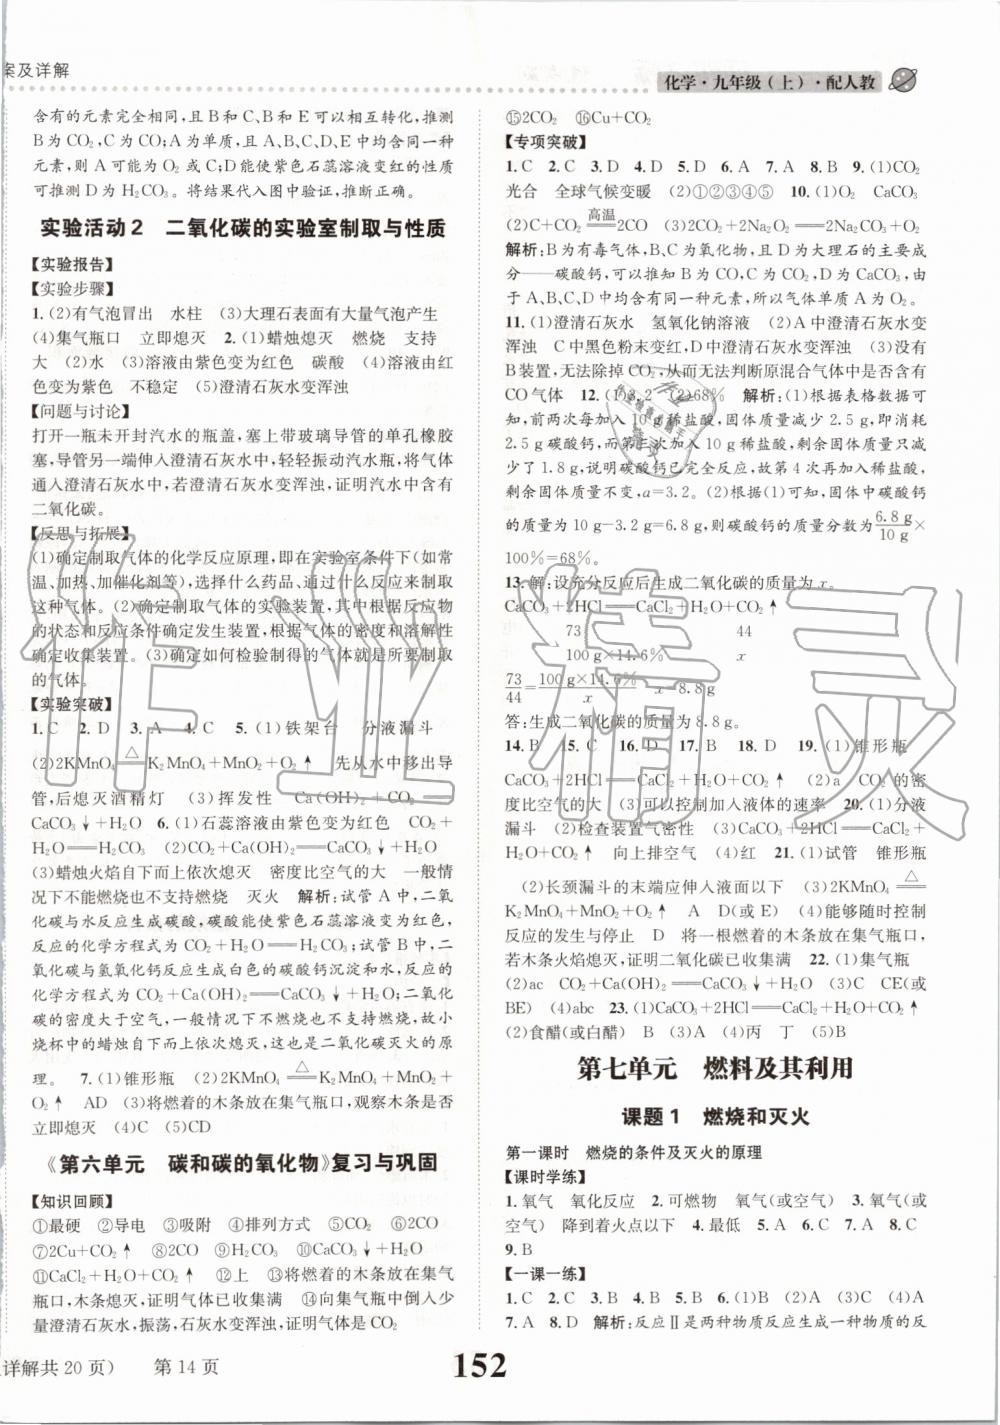 案及详解
化学·九年级(上)·配人教
含有的元素完全相同,且B和C、B和E可以相互转化,推测
B为CO₂,C为H₂CO₃,A为单质,且A、B、C、D、E中均含同一种
元素,则A可能为O₂或C;D能使紫色石蕊溶液变红的性质
可推测D为H₂CO₃。将结果代入图中验证,推断正确。
实验活动2 二氧化碳的实验室制取与性质
【实验报告】
【实验步骤】
1.(2)有气泡冒出 水柱 (3)大理石表面有大量气泡产生
(4)集气瓶口 立即熄灭 2.(1)蜡烛熄灭 燃烧 支持
大 (2)水 (3)溶液由紫色变为红色 碳酸 (4)溶液由红
色变为紫色 不稳定 (5)澄清石灰水变浑浊
【问题与讨论】
打开一瓶未开封汽水的瓶盖,塞上带玻璃导管的单孔橡胶
塞,导管另一端伸入澄清石灰水中,轻轻振动汽水瓶,将气体
通入澄清石灰水中,若澄清石灰水变浑浊,证明汽水中含有
二氧化碳。
【反思与拓展】
(1)确定制取气体的化学反应原理,即在实验室条件下(如常
温、加热、加催化剂等),选择什么药品、通过什么反应来制取
这种气体。(2)确定制取气体的实验装置,其中根据反应物
的状态和反应条件确定发生装置,根据气体的密度和溶解性
确定收集装置。(3)确定如何检验制得的气体就是所要制取
的气体。
【实验突破】
1.C 2.D 3.A 4.C 5.(1)铁架台 分液漏斗
(2)2KMnO₄ ≜ K₂MnO₄+MnO₂+O₂↑ 先从水中移出导
管,后熄灭酒精灯 (3)挥发性 Ca(OH)₂+CO₂══
CaCO₃↓+H₂O 6.(1)石蕊溶液由紫色变为红色 CO₂+
H₂O══H₂CO₃ (2)CO₂+Ca(OH)₂══CaCO₃↓+H₂O
(3)蜡烛火焰自下而上依次熄灭 密度比空气的大 一般情
况下不能燃烧也不支持燃烧 灭火 解析:试管A中,二氧
化碳与水反应生成碳酸,碳酸能使紫色石蕊溶液变为红色,
反应的化学方程式为CO₂+H₂O══H₂CO₃;试管B中,二
氧化碳与氢氧化钙反应生成白色的碳酸钙沉淀和水,反应的
化学方程式为CO₂+Ca(OH)₂══CaCO₃↓+H₂O;二氧化
碳的密度大于空气,一般情况下不燃烧也不支持燃烧,故小
烧杯中的蜡烛自下而上依次熄灭,这是二氧化碳灭火的原
理。 7.(1)锥形瓶 (2)2KMnO₄ ≜ K₂MnO₄+MnO₂+
O₂↑ AD (3)将燃着的木条放在集气瓶口,观察木条是否
立即熄灭 (4)C (5)CD
《第六单元 碳和碳的氧化物》复习与巩固
【知识回顾】
①最硬 ②导电 ③吸附 ④排列方式 ⑤CO₂ ⑥CO
⑦2Cu+CO₂↑ ⑧2CO ⑨H₂CO₃ ⑩CaCO₃↓+H₂O
⑪CaCl₂+H₂O+CO₂↑ ⑫上 ⑬将燃着的木条放在集气
瓶口,木条熄灭,证明气体已收集满 ⑭向集气瓶中倒入少
量澄清石灰水,振荡,石灰水变浑浊,证明气体是CO₂
⑮2CO₂ ⑯Cu+CO₂
【专项突破】
1.C 2.C 3.D 4.D 5.D 6.A 7.A 8.B 9.(1)CO₂
光合 全球气候变暖 (2)①②③④⑤ 10.(1)O₂ CaCO₃
(2)C+CO₂ 高温══ 2CO (3)2CO₂+2Na₂O₂══2Na₂CO₃+O₂
解析:B为有毒气体,B、C为氧化物,且D为大理石的主要成
分——碳酸钙,可以推知B为CO,C为CO₂,D为CaCO₃,由
于A、B、C、D均含有同一种元素,所以气体单质A为O₂。
11.(1)澄清石灰水 氢氧化钠溶液 (2)A中澄清石灰水变
浑浊 C中黑色粉末变红,D中澄清石灰水变浑浊 (3)没有
B装置,无法除尽CO₂,从而无法判断原混合气体中是否含有
CO气体 12.(1)3.2 (2)68% 解析:(1)根据表格数据可
知,前两次每加入10 g稀盐酸,固体质量减少2.5 g,即消耗
2.5 g碳酸钙,而第三次加入10 g稀盐酸,剩余固体质量只减
少了1.8 g,说明碳酸钙已完全反应,故第4次再加入稀盐酸,
剩余固体质量不变,a=3.2。(2)根据(1)可知,固体中碳酸钙
的质量为10 g-3.2 g=6.8 g,则碳酸钙的质量分数为6.8 g/10 g×
100%=68%。
13.解:设充分反应后生成二氧化碳的质量为x。
CaCO₃+2HCl══CaCl₂+H₂O+CO₂↑
73 44
100 g×14.6% x
73/44=100 g×14.6%/x x=8.8 g
答:生成二氧化碳的质量为8.8 g。
14.B 15.C 16.D 17.B 18.D 19.(1)锥形瓶
CaCO₃+2HCl══CaCl₂+H₂O+CO₂↑ (2)a CO₂的密
度比空气的大 (3)可以控制加入液体的速率 20.(1)分液
漏斗 (2)检查装置气密性 (3)CaCO₃+2HCl══CaCl₂+
H₂O+CO₂↑ 向上排空气 (4)红 21.(1)试管 锥形瓶
(2)长颈漏斗的末端应伸入液面以下 (3)2KMnO₄ ≜
K₂MnO₄+MnO₂+O₂↑ A D(或E) (4)能够随时控制
反应的发生与停止 D 将一根燃着的木条放在集气瓶口,
若木条火焰熄灭,证明二氧化碳已收集满 22.(1)集气瓶
(2)ac CO₂+Ca(OH)₂══CaCO₃↓+H₂O (3)C CE(或
BE) (4)abc 23.(1)CaCO₃+2HCl══CaCl₂+H₂O+CO₂↑
(2)食醋(或白醋) B (3)A (4)丙 丁 (5)B
第七单元 燃料及其利用
课题1 燃烧和灭火
第一课时 燃烧的条件及灭火的原理
【课时学练】
1.氧气 氧化反应 2.可燃物 氧气(或空气) 3.氧气(或
空气) 降到着火点以下 4.最低 5.A 6.C 7.A 8.C
9.B
【一课一练】
1.C 2.C 3.B 4.B 5.B 6.(1)B (2)A (3)C (4)A
7.A 8.D 解析:反应Ⅱ是两种物质反应生成一种物质的反
详解共20页) 第14页
152
作业精灵